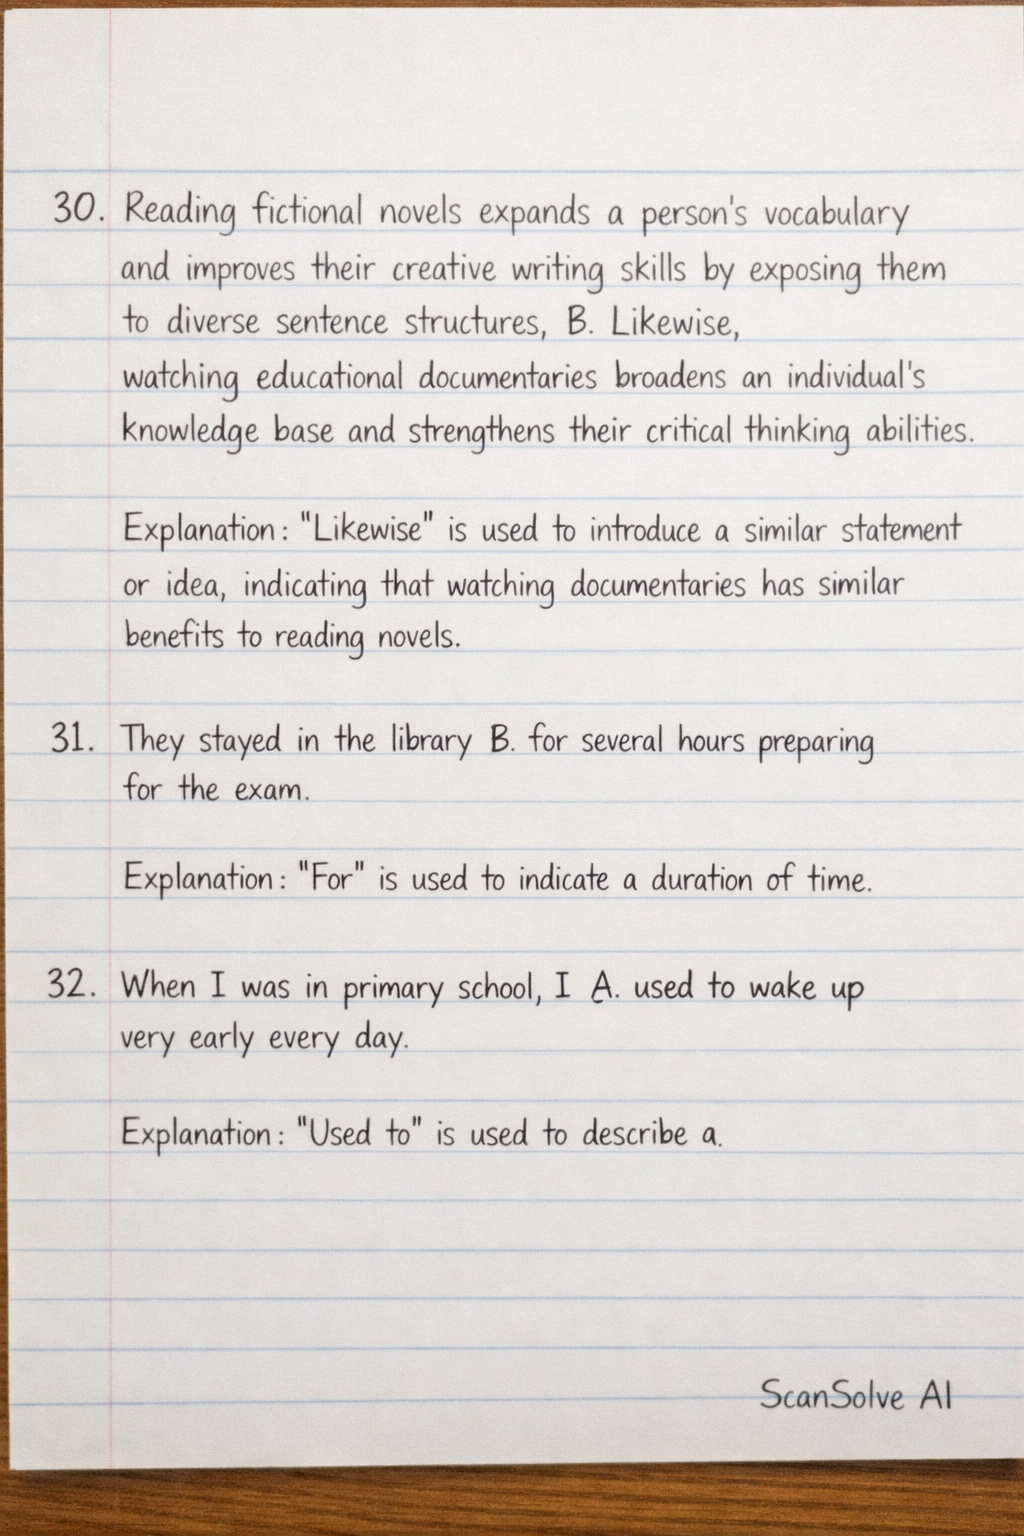 30. Reading fictional novels expands a person's vocabulary
and improves their creative writing skills by exposing them
to diverse sentence structures, B. Likewise,
watching educational documentaries broadens an individual's
knowledge base and strengthens their critical thinking abilities.
Explanation: "Likewise" is used to introduce a similar statement
or idea, indicating that watching documentaries has similar
benefits to reading novels.
31. They stayed in the library B. for several hours preparing
for the exam.
Explanation: "For" is used to indicate a duration of time.
32. When I was in primary school, I A. used to wake up
very early every day.
Explanation: "Used to" is used to describe a.
ScanSolve AI